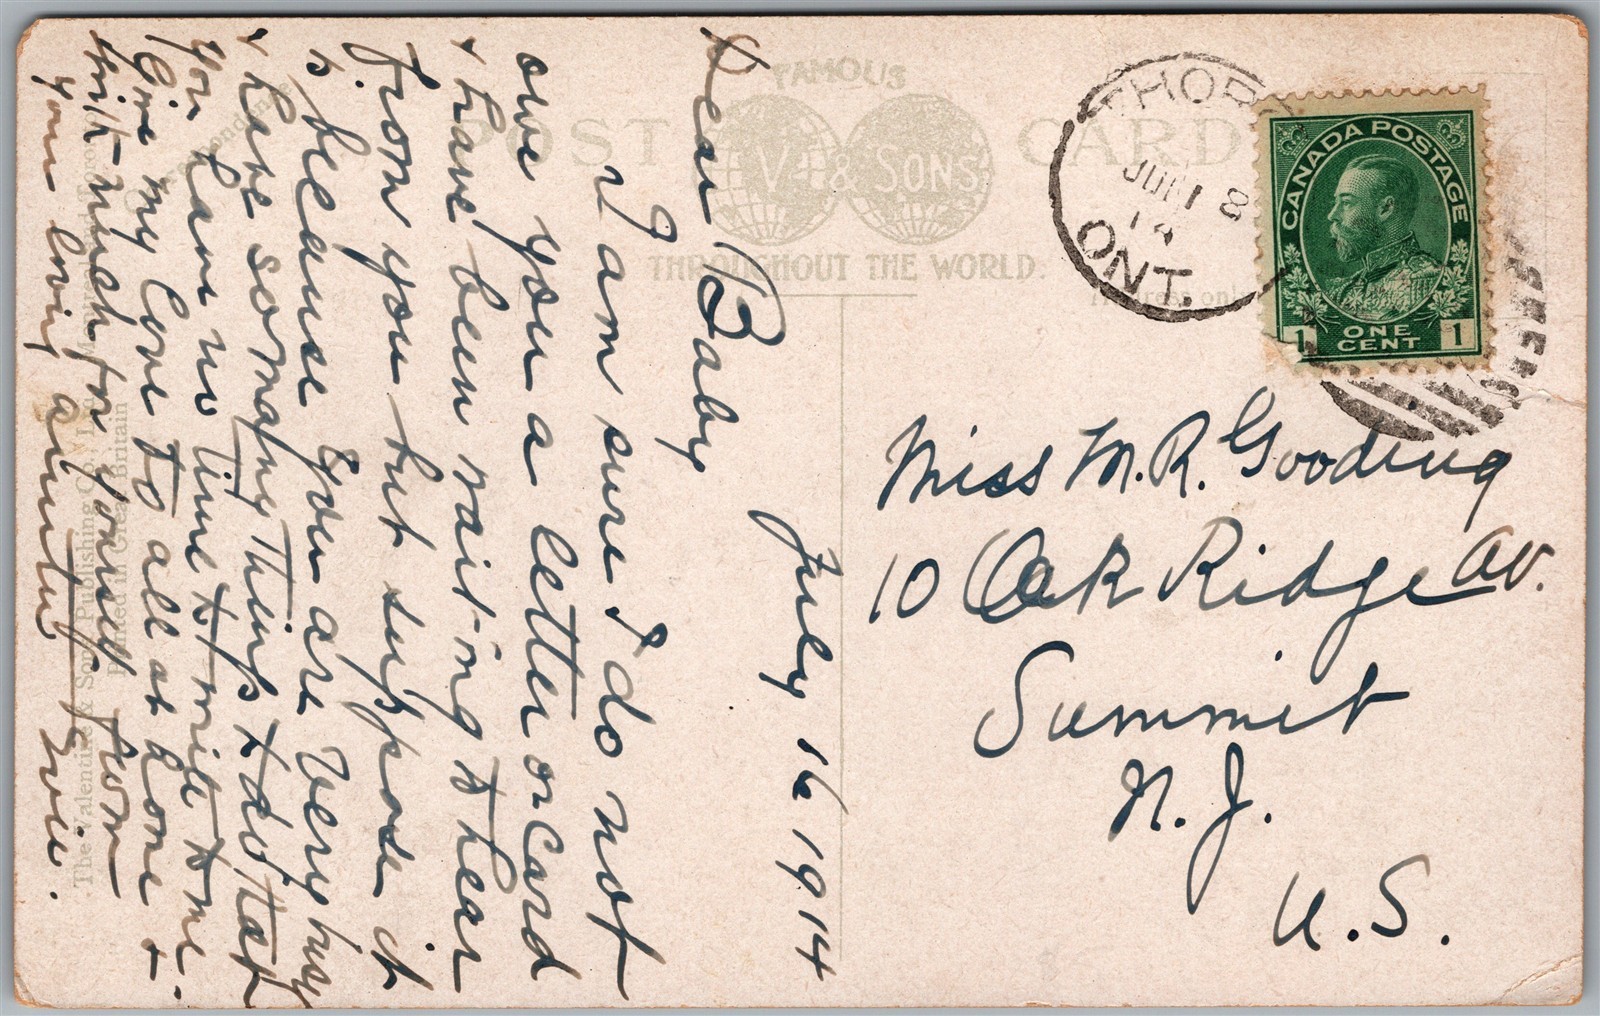 FAMOUS
POST CARD
V & SONS
THROUGHOUT THE WORLD.
Correspondence
Address only
THOR
JUL 18
14
ONT.
CANADA POSTAGE
1 ONE CENT 1
July 16 1914
Dear Baby
I am sure I do not
owe you a letter or card
& have been waiting to hear
from you but suppose it
is because you are very busy
& have so many things to do that
you have no time to write to me.
Give my love to all at home &
with much for yourself from
your loving auntie
Miss M. R. Gooding
10 Oak Ridge Av.
Summit
N. J.
U. S.
The Valentine & Sons Publishing Co., Ltd., Montreal and Toronto
Printed in Great Britain